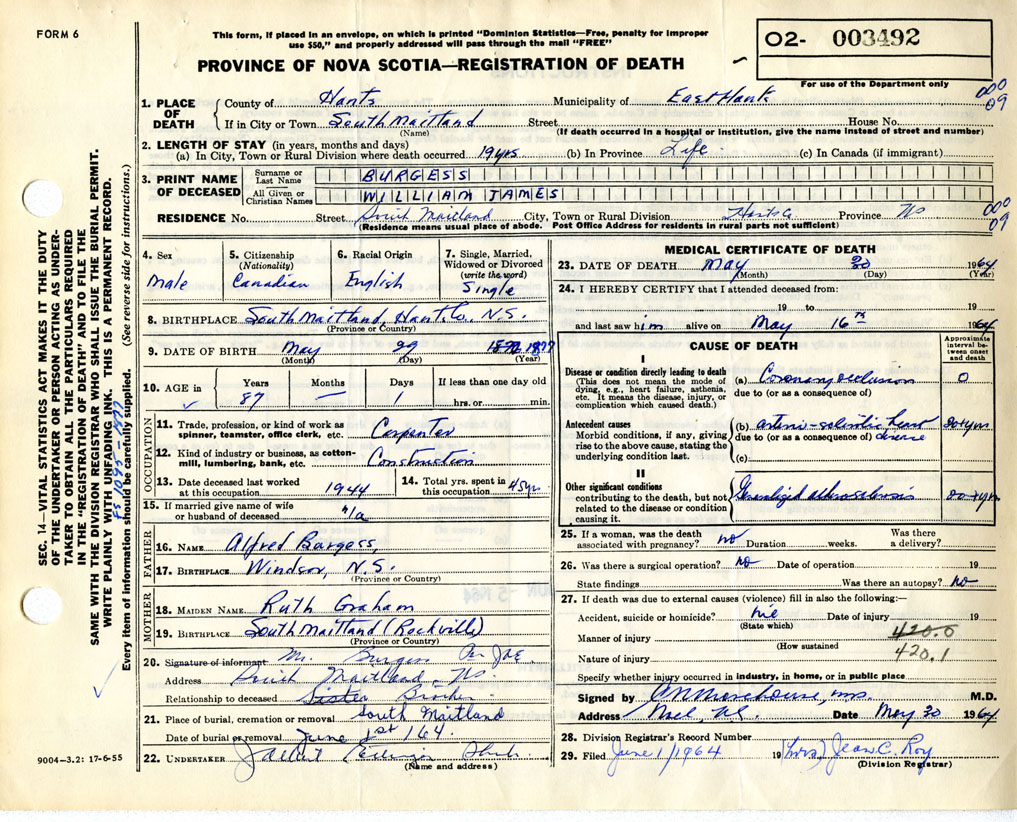 FORM 6
This form, if placed in an envelope, on which is printed "Dominion Statistics—Free, penalty for improper
use $50," and properly addressed will pass through the mail "FREE"
PROVINCE OF NOVA SCOTIA—REGISTRATION OF DEATH
02- 003492
For use of the Department only
000
09
1. PLACE OF DEATH
County of Hants Municipality of East Hants
If in City or Town South Maitland Street House No.
(Name) (If death occurred in a hospital or institution, give the name instead of street and number)
2. LENGTH OF STAY (in years, months and days)
(a) In City, Town or Rural Division where death occurred 19 yrs (b) In Province Life (c) In Canada (if immigrant)
3. PRINT NAME OF DECEASED
Surname or Last Name BURGESS
All Given or Christian Names WILLIAM JAMES
RESIDENCE No. Street South Maitland City, Town or Rural Division Hants Co Province NS
000
09
(Residence means usual place of abode. Post Office Address for residents in rural parts not sufficient)
4. Sex
Male
5. Citizenship
(Nationality)
Canadian
6. Racial Origin
English
7. Single, Married,
Widowed or Divorced
(write the word)
Single
8. BIRTHPLACE South Maitland Hants Co. N.S.
(Province or Country)
9. DATE OF BIRTH May 29 1877
(Month) (Day) (Year)
10. AGE in
Years Months Days If less than one day old
87 — 1 hrs. or min.
OCCUPATION
11. Trade, profession, or kind of work as
spinner, teamster, office clerk, etc. Carpenter
12. Kind of industry or business, as cotton-
mill, lumbering, bank, etc. Construction
13. Date deceased last worked
at this occupation 1944
14. Total yrs. spent in
this occupation 45 yrs
15. If married give name of wife
or husband of deceased n/a
FATHER
16. NAME Alfred Burgess,
17. BIRTHPLACE Windsor, N.S.
(Province or Country)
MOTHER
18. MAIDEN NAME Ruth Graham
19. BIRTHPLACE South Maitland (Rockville)
(Province or Country)
20. Signature of informant Mr. Burgess
Address South Maitland, NS.
Relationship to deceased Sister Brother
21. Place of burial, cremation or removal South Maitland
Date of burial or removal June 1st 1964
22. UNDERTAKER
(Name and address)
MEDICAL CERTIFICATE OF DEATH
23. DATE OF DEATH May 30 1964
(Month) (Day) (Year)
24. I HEREBY CERTIFY that I attended deceased from:
19 to 19
and last saw him alive on May 16th 1964
CAUSE OF DEATH
Approximate interval between onset and death
I
Disease or condition directly leading to death
(This does not mean the mode of
dying, e.g., heart failure, asthenia,
etc. It means the disease, injury, or
complication which caused death.)
(a) Coronary occlusion 0
due to (or as a consequence of)
Antecedent causes
Morbid conditions, if any, giving
rise to the above cause, stating the
underlying condition last.
(b) arterio-sclerotic heart disease 20+yrs
due to (or as a consequence of)
(c)
II
Other significant conditions
contributing to the death, but not
related to the disease or condition
causing it.
Generalized atherosclerosis 20+yrs
25. If a woman, was the death
associated with pregnancy? no Duration weeks. Was there
a delivery?
26. Was there a surgical operation? No Date of operation 19
State findings Was there an autopsy? No
27. If death was due to external causes (violence) fill in also the following:—
Accident, suicide or homicide? Date of injury 19
(State which)
420.0
Manner of injury
(How sustained
420.1
Nature of injury
Specify whether injury occurred in industry, in home, or in public place
Signed by M.D.
Address Noel, NS. Date May 30 1964
28. Division Registrar's Record Number
29. Filed June 1/1964 19 (Mrs) Jean C. Roy
(Division Registrar)
SEC. 14—VITAL STATISTICS ACT MAKES IT THE DUTY
OF THE UNDERTAKER OR PERSON ACTING AS UNDER-
TAKER TO OBTAIN ALL THE PARTICULARS REQUIRED
IN THE "REGISTRATION OF DEATH" AND TO FILE THE
SAME WITH THE DIVISION REGISTRAR WHO SHALL ISSUE THE BURIAL PERMIT.
WRITE PLAINLY WITH UNFADING INK. THIS IS A PERMANENT RECORD.
Every item of information should be carefully supplied. (See reverse side for instructions.)
9004-3.2: 17-6-55